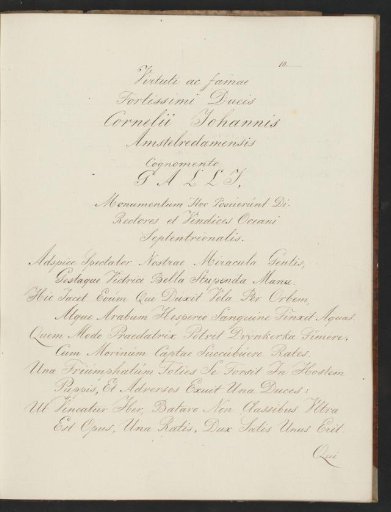 10.
Virtuti ac famae
Fortissimi Ducis
Cornelii Johannis
Amstelredamensis
Cognomento
GALLI,
Monumentum Hoc Posuerunt Di-
Rectores et Vindices Oceani
Septentrionalis.
Adspice Spectator Nostrae Miracula Gentis,
Gestaque Victrici Bella Stupenda Manu.
Hic Jacet Eoum Qui Duxit Vela Per Orbem,
Atque Arabum Hesperio Sanguine Tinxit Aquas.
Quem Modo Praedatrix Potuit Dunkerka Timere,
Cum Morinum Captae Succubuere Rates
Una Triumphatum Toties Se Torsit In Hostem
Puppis, Et Adversos Exuit Una Duces:
Ut Vincatur Iber, Batavo Non Classibus Ultra
Est Opus, Una Ratis, Dux Satis Unus Erit
Qui